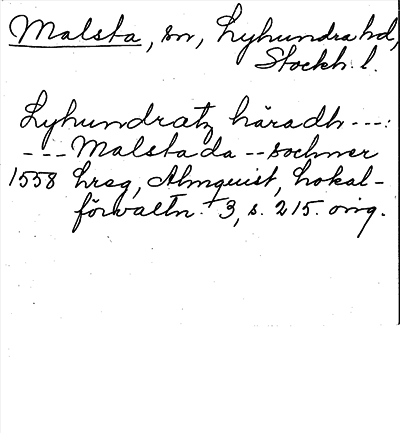 Malsta, sn, Lyhundra hd,
Stockh. l.
Lyhundratz häradh ---:
--- Malstada -- sochner
1558 hreg, Almquist, Lokal-
förvaltn. 3, s. 215. orig.